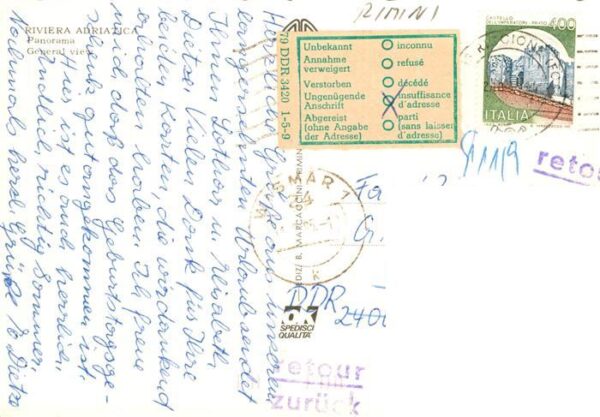 RIVIERA ADRIATICA
Panorama
General view
RIMINI
CASTELLO
DELL'IMPERATORE - PRATO
400
ITALIA
79 DDR 3420 1-5-9
Unbekannt inconnu
Annahme
verweigert refusé
Verstorben décédé
Ungenügende
Anschrift insuffisance
d'adresse
Abgereist
(ohne Angabe
der Adresse) parti
(sans laisser
d'adresse)
retour
WISMAR 1
EDIZ. B. MARCACCINI - RIMINI
DDR
240
OK
SPEDISCI
QUALITÀ
retour
zurück
Herzliche Grüße aus unserem
Urlaub sendet
Ihnen Lothar u. Elisabeth
Dietze. Vielen Dank für Ihre
beiden Karten, die wir dankend
erhalten haben. Ich freue
mich, daß das Geburtstagsge-
schenk gut angekommen ist.
Hier ist es auch herrlich,
endlich richtig Sommer.
Nochmals herzl. Grüße E. Dietze